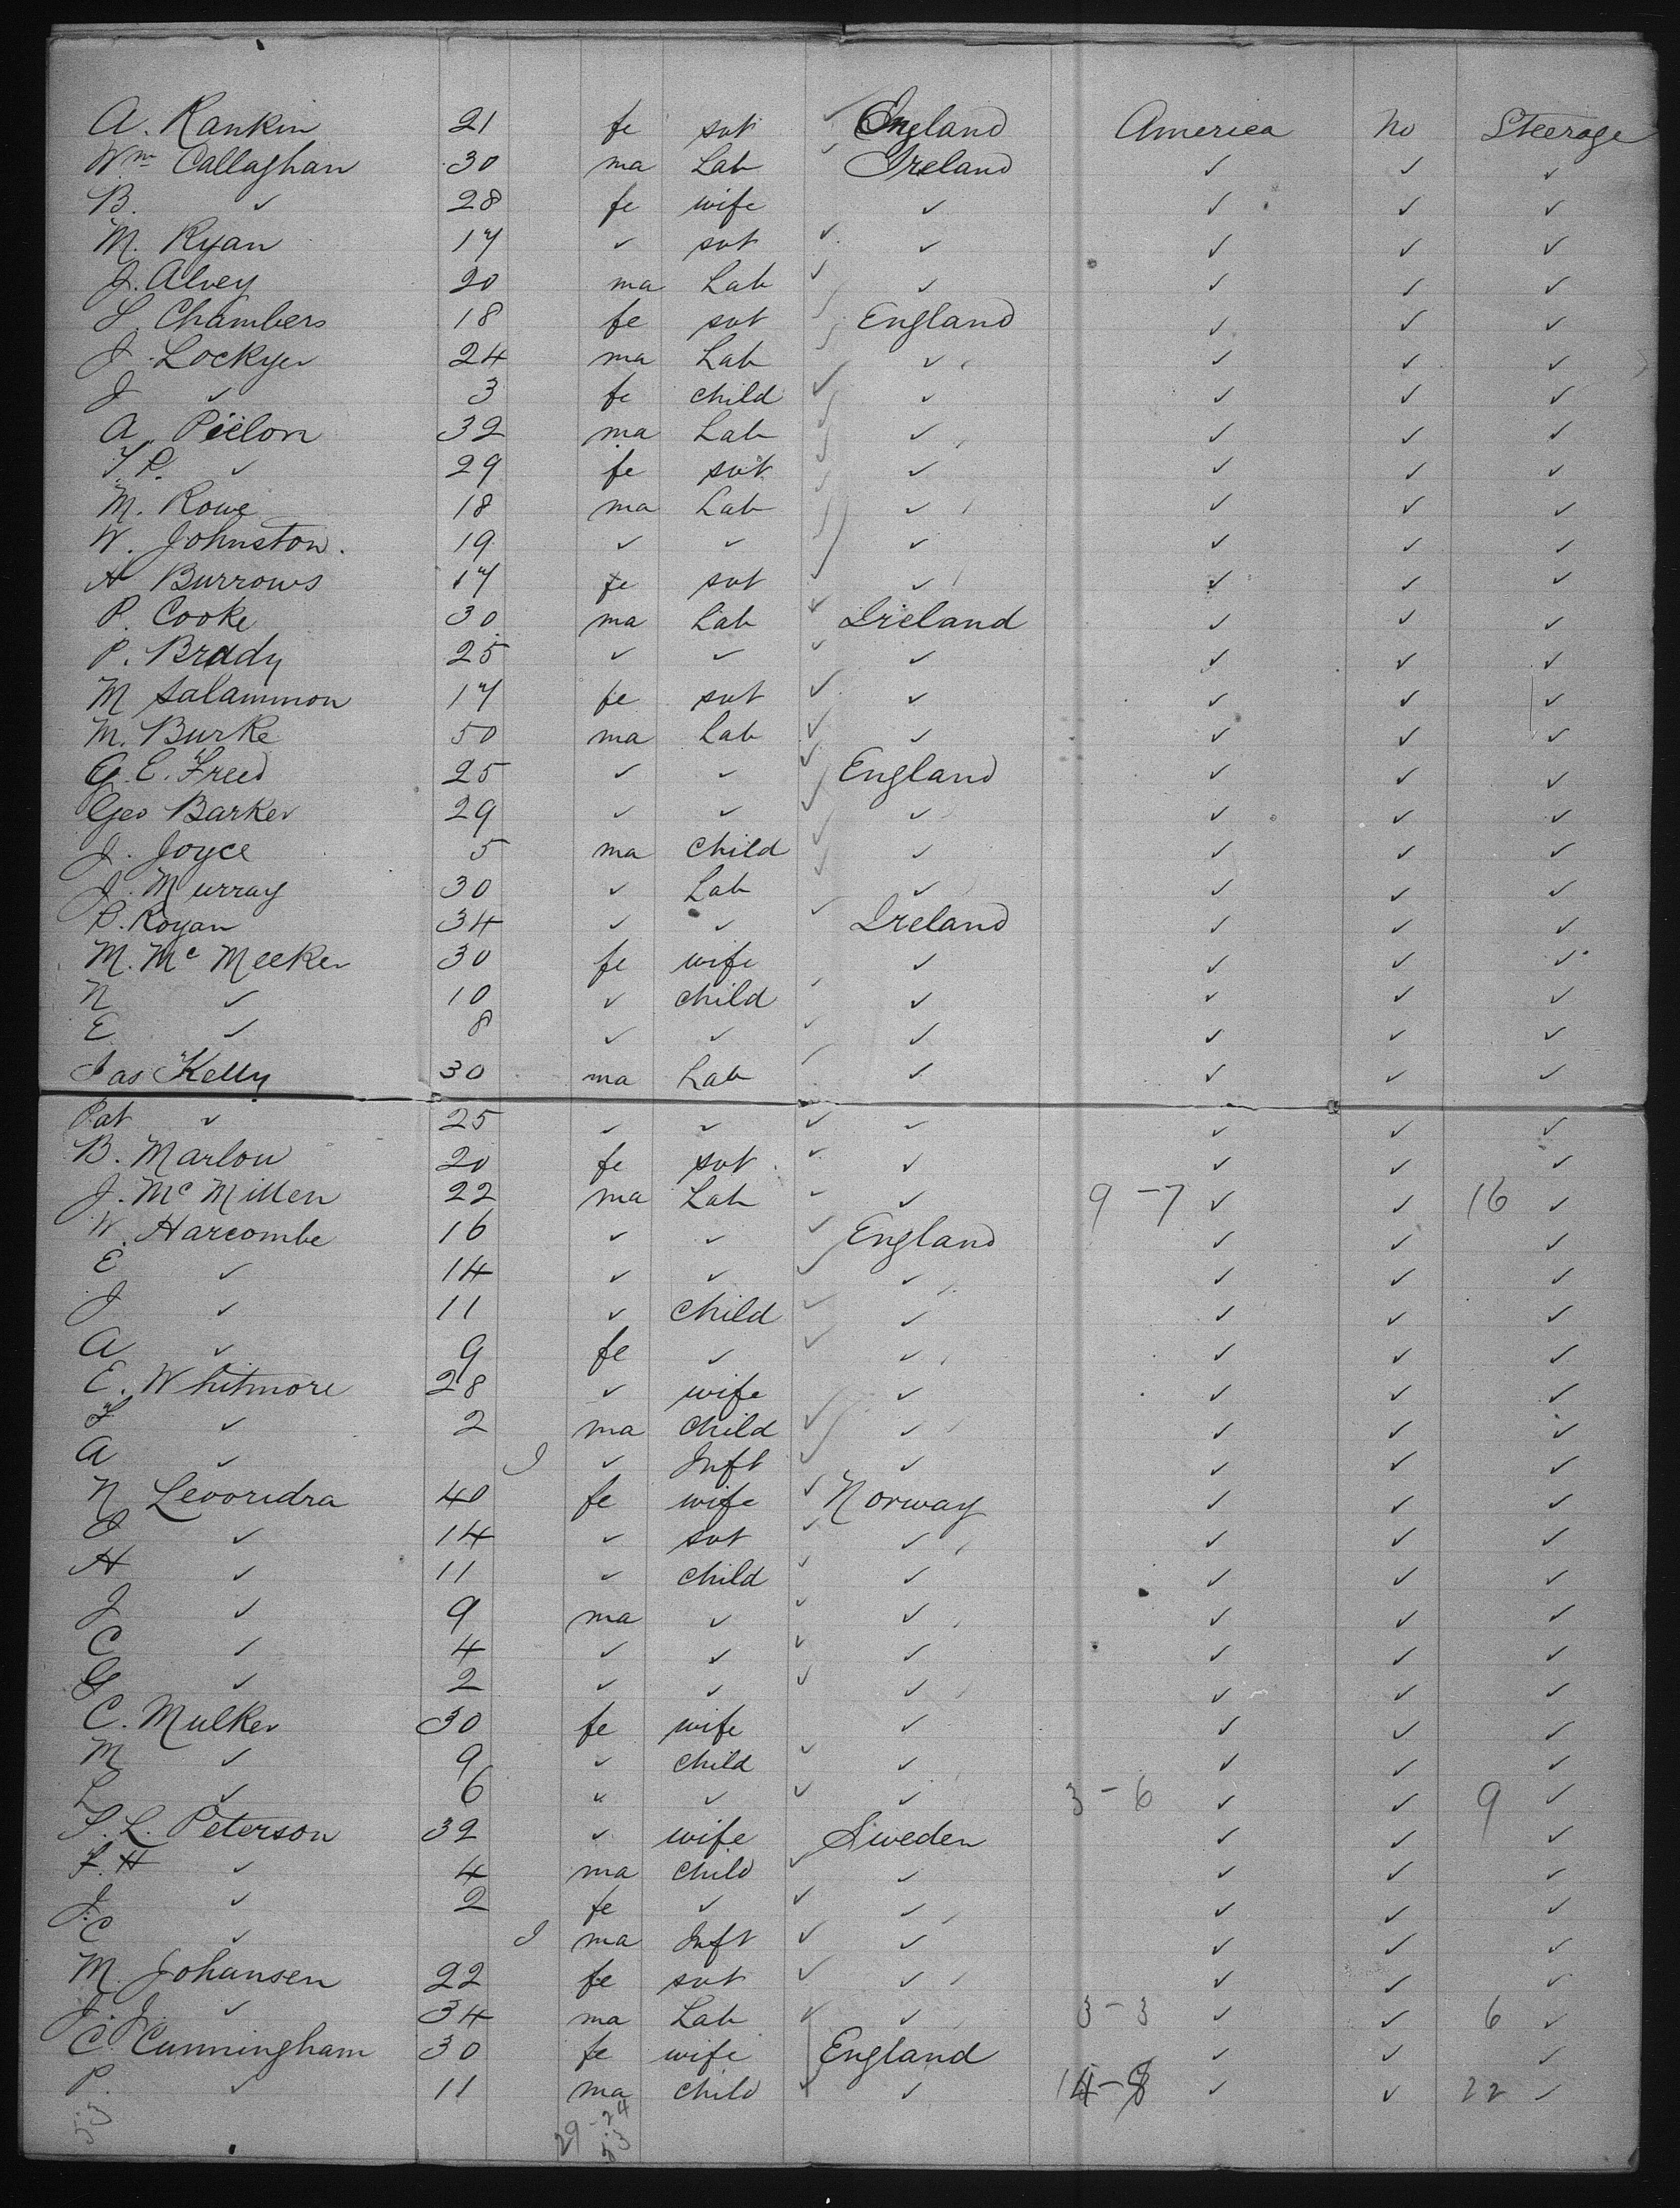 A. Rankin 21 fe svt ✓ England America No Steerage
Wm Callaghan 30 ma Lab ✓ Ireland ✓ ✓ ✓
B. ✓ 28 fe wife ✓ ✓ ✓ ✓
M. Ryan 17 ✓ svt ✓ ✓ ✓ ✓ ✓
J. Alvey 20 ma Lab ✓ ✓ ✓ ✓ ✓
S. Chambers 18 fe svt England ✓ ✓ ✓
J. Lockyer 24 ma Lab ✓ ✓ ✓ ✓
J ✓ 3 fe child ✓ ✓ ✓ ✓ ✓
A. 32 ma Lab ✓ ✓ ✓ ✓
✓ 29 fe svt ✓ ✓ ✓ ✓
M. Rowe 18 ma Lab ✓ ✓ ✓ ✓
W. Johnston. 19 ✓ ✓ ✓ ✓ ✓ ✓
A Burrows 17 fe svt ✓ ✓ ✓ ✓
P. Cooke 30 ma Lab ✓ Ireland ✓ ✓ ✓
P. Brady 25 ✓ ✓ ✓ ✓ ✓ ✓ ✓
M Salammon 17 fe svt ✓ ✓ ✓ ✓ ✓
M. Burke 50 ma Lab ✓ ✓ ✓ ✓ ✓
G. E. Freed 25 ✓ ✓ ✓ England ✓ ✓ ✓
Geo Barker 29 ✓ ✓ ✓ ✓ ✓ ✓ ✓
J. Joyce 5 ma Child ✓ ✓ ✓ ✓ ✓
J. Murray 30 ✓ Lab ✓ ✓ ✓ ✓ ✓
P. Royan 34 ✓ ✓ ✓ Ireland ✓ ✓ ✓
M. Mc Meeker 30 fe wife ✓ ✓ ✓ ✓
N ✓ 10 ✓ child ✓ ✓ ✓ ✓ ✓
E ✓ 8 ✓ ✓ ✓ ✓ ✓ ✓ ✓
Jas Kelly 30 ma Lab ✓ ✓ ✓ ✓ ✓
Pat ✓ 25 ✓ ✓ ✓ ✓ ✓ ✓ ✓
B. Marlow 20 fe svt ✓ ✓ ✓ ✓ ✓
J. Mc Millen 22 ma Lab ✓ ✓ 9 - 7 ✓ ✓ 16 ✓
W. Harcombe 16 ✓ ✓ ✓ England ✓ ✓ ✓
E ✓ 14 ✓ ✓ ✓ ✓ ✓ ✓ ✓
J ✓ 11 ✓ Child ✓ ✓ ✓ ✓ ✓
A ✓ 9 fe ✓ ✓ ✓ ✓ ✓ ✓
E. Whitmore 28 ✓ wife ✓ ✓ ✓ ✓
F ✓ 2 ma Child ✓ ✓ ✓ ✓ ✓
A ✓ I ✓ Inft ✓ ✓ ✓ ✓ ✓
N 40 fe wife ✓ Norway ✓ ✓ ✓
✓ 14 ✓ svt ✓ ✓ ✓ ✓ ✓
H ✓ 11 ✓ child ✓ ✓ ✓ ✓ ✓
J ✓ 9 ma ✓ ✓ ✓ ✓ ✓ ✓
C ✓ 4 ✓ ✓ ✓ ✓ ✓ ✓ ✓
G ✓ 2 ✓ ✓ ✓ ✓ ✓ ✓ ✓
C. Mulker 30 fe wife ✓ ✓ ✓ ✓
M ✓ 9 ✓ child ✓ ✓ ✓ ✓ ✓
L ✓ 6 ✓ ✓ ✓ ✓ 3 - 6 ✓ ✓ 9 ✓
S. L. Peterson 32 ✓ wife Sweden ✓ ✓ ✓
F. H ✓ 4 ma Child ✓ ✓ ✓ ✓ ✓
J. ✓ 2 fe ✓ ✓ ✓ ✓ ✓ ✓
C ✓ I ma Inft ✓ ✓ ✓ ✓ ✓
M. Johansen 22 fe svt ✓ ✓ ✓ ✓ ✓
J. J. ✓ 34 ma Lab ✓ ✓ 3 - 3 ✓ ✓ 6 ✓
C. Cunningham 30 fe wife England ✓ ✓ ✓
P. ✓ 11 ma Child ✓ ✓ 14 - 8 ✓ ✓ 22 ✓
53 29 - 24
53